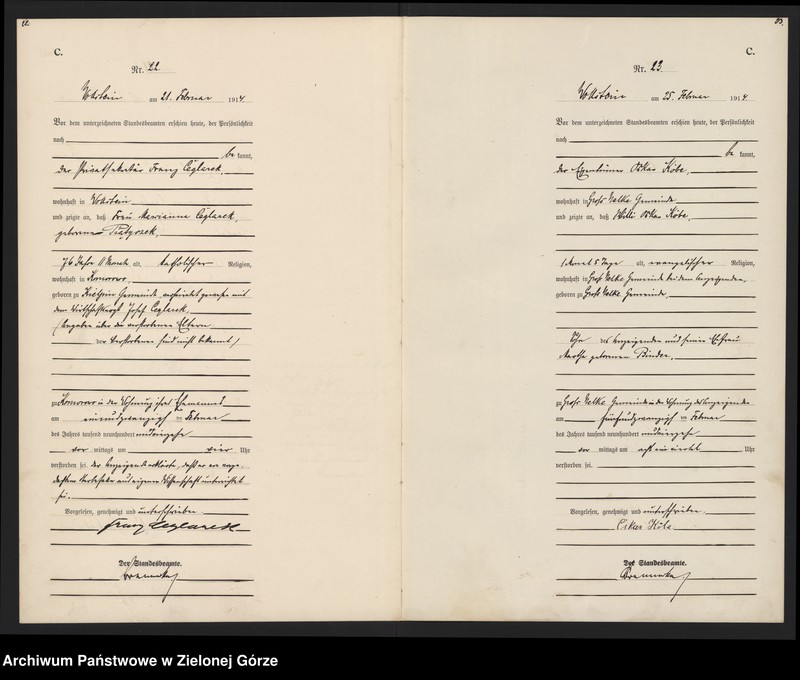 C.
Nr. 22.
Wollstein am 21. Februar 1914.
Vor dem unterzeichneten Standesbeamten erschien heute, der Persönlichkeit
nach
be kannt,
der Privatsekretär Franz Ceglarek,
wohnhaft in Wollstein
und zeigte an, daß Frau Marianna Ceglarek,
geborene
76 Jahre 11 Monate alt, katholischer Religion,
wohnhaft in Komorowo,
geboren zu Kielpin Gemeinde, verheiratet gewesen mit
dem Josef Ceglarek,
(Angaben über die verstorbenen Eltern
der Verstorbenen sind nicht bekannt)
zu Komorowo in der Wohnung ihres Ehemannes
am einundzwanzigsten Februar
des Jahres tausend neunhundert und vierzehn
vor mittags um vier Uhr
verstorben sei. Der Anzeigende erklärte, daß er von
dem Sterbefalle aus eigener Wissenschaft unterrichtet
sei.
Vorgelesen, genehmigt und unterschrieben
Franz Ceglarek
Der Standesbeamte.
C.
Nr. 23.
Wollstein am 25. Februar 1914
Vor dem unterzeichneten Standesbeamten erschien heute, der Persönlichkeit
nach
be kannt,
der Eigentümer Oskar Köbe,
wohnhaft in Groß Nelke Gemeinde,
und zeigte an, daß Willi Oskar Köbe,
1 Monat 5 Tage alt, evangelischer Religion,
wohnhaft in Groß Nelke Gemeinde bei dem Anzeigenden,
geboren zu Groß Nelke Gemeinde,
Sohn des Anzeigenden und seiner Ehefrau
Martha geborenen Binder,
zu Groß Nelke Gemeinde in der Wohnung des Anzeigenden
am fünfundzwanzigsten Februar
des Jahres tausend neunhundert und vierzehn
vor mittags um acht ein viertel Uhr
verstorben sei.
Vorgelesen, genehmigt und unterschrieben.
Oskar Köbe
Der Standesbeamte.
Archiwum Państwowe w Zielonej Górze